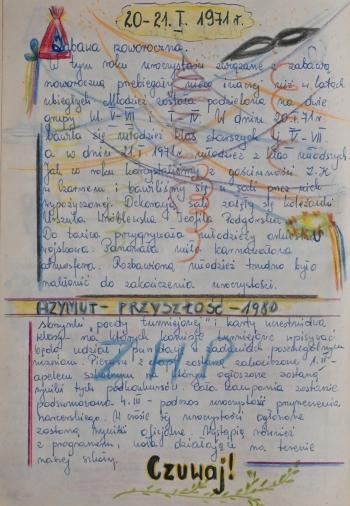 20-21.I. 1971 r.
Zabawa noworoczna.
W tym roku uroczystości związane z zabawą
noworoczną przebiegały nieco inaczej niż w latach
ubiegłych. Młodzież została podzielona na dwie
grupy V-VII i I-IV. W dniu 20.I.71 r.
bawiła się młodzież klas starszych V-VII
a w dniu 21.I.1971 r. młodzież z klas młodszych.
Jak w roku korzystaliśmy z gościnności J.K
w Czarnem i bawiliśmy się w sali przez nich
wypożyczonej. Dekoracją sali zajęły się koleżanki
Urszula Wróblewska, Teofila Podgórska.
Do tańca przygrywała młodzieży orkiestra
wojskowa. Panowała miła karnawałowa
atmosfera. Rozbawioną młodzież trudno było
nakłonić do zakończenia uroczystości.
AZYMUT - PRZYSZŁOŚĆ - 1980
skrzynki "porady turniejowej" i karty uczestnictwa
na których komisje turniejowe wpisywać
będą udział i punktację w zadaniach poszczególnym
uczniom. Pierwszy z etapów zostaną zakończone 1.III-
apelem szkolnym na którym ogłoszone zostaną
wyniki tych podkonkursów. Cała kampania zostanie
podsumowana 4.III - podczas uroczystości przyrzeczenia
harcerskiego. W czasie tej uroczystości ogłoszone
zostaną wyniki oficjalne. Wystąpią również
z programem, koła działające na terenie
naszej szkoły.
ZHP
Czuwaj!